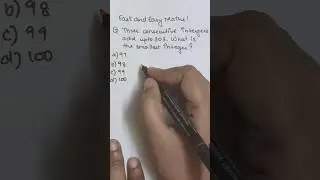 Fast and Easy Maths!
Q Three consecutive Integers
add upto 303. What is
the smallest Integer?
a) 97
b) 98
c) 99
d) 100